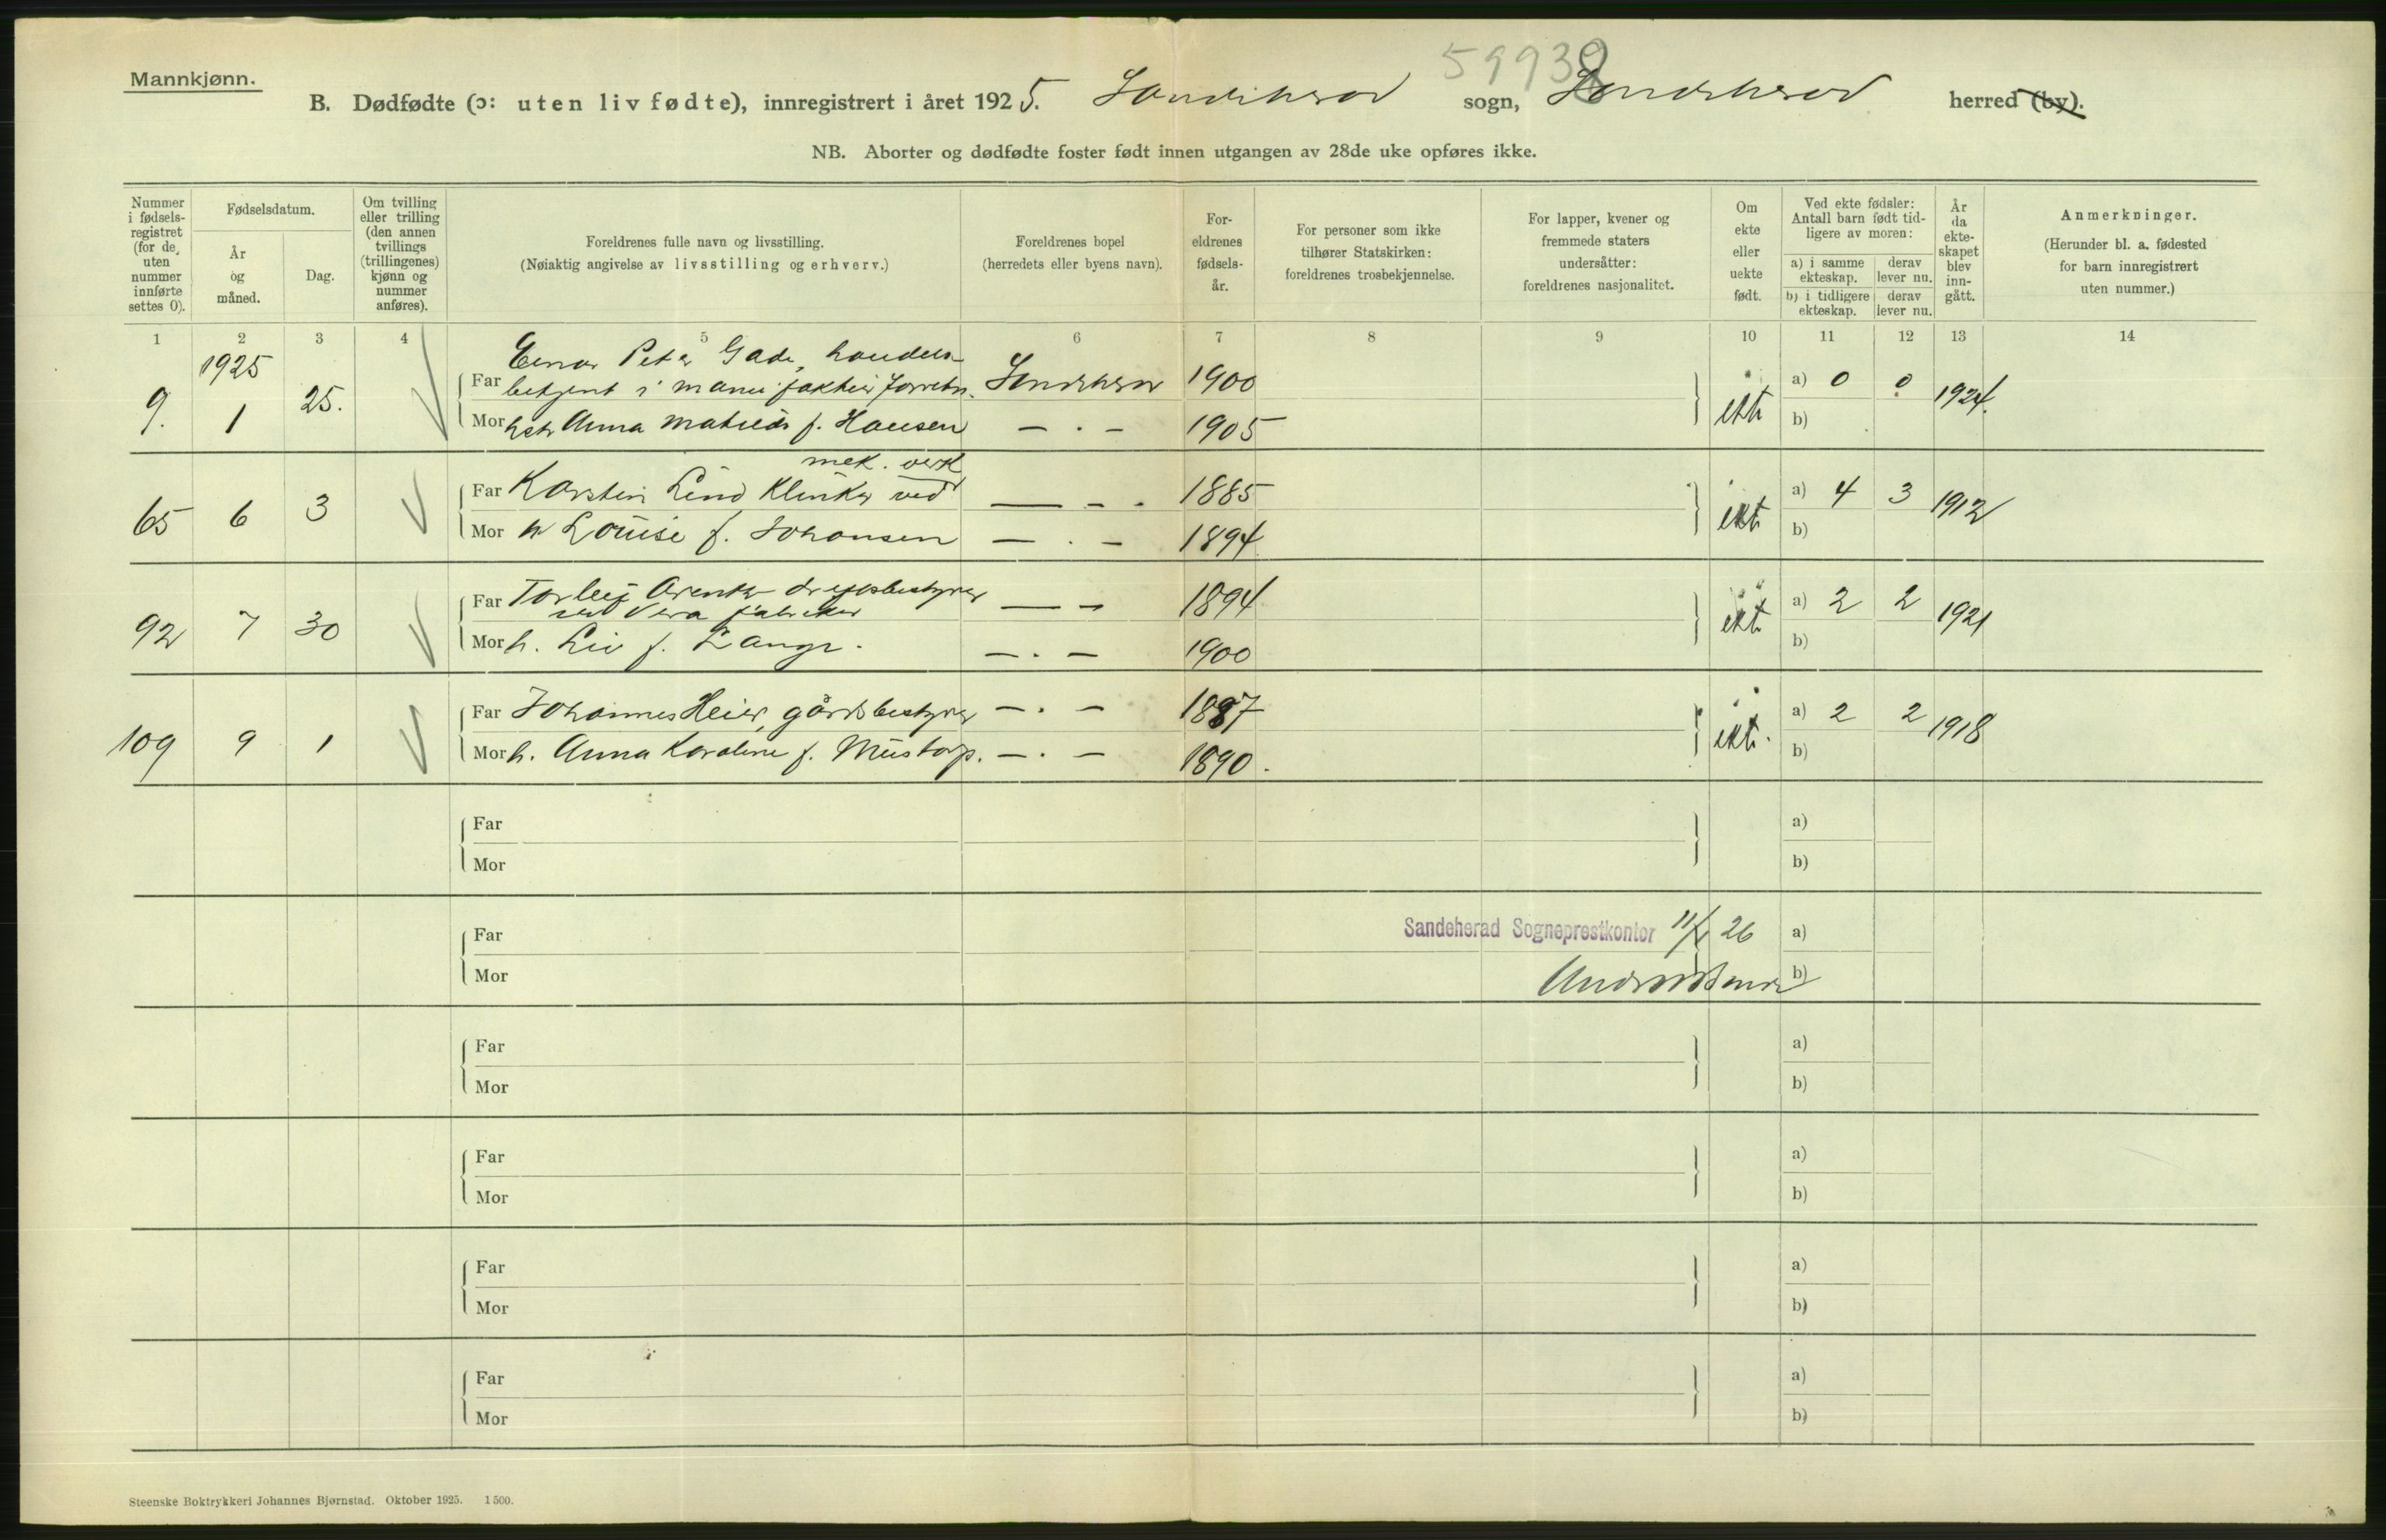 59938
Mannkjønn.
B. Dødfødte (ɔ: uten liv fødte), innregistrert i året 1925. Sandeherad sogn, Sandeherad herred (by).
NB. Aborter og dødfødte foster født innen utgangen av 28de uke opføres ikke.
Nummer i fødsels-registret (for de uten nummer innførte settes 0).
Fødselsdatum.
År og måned.
Dag.
Om tvilling eller trilling (den annen tvillings (trillingenes) kjønn og nummer anføres).
Foreldrenes fulle navn og livsstilling.
(Nøiaktig angivelse av livsstilling og erhverv.)
Foreldrenes bopel
(herredets eller byens navn).
For-eldrenes fødsels-år.
For personer som ikke tilhører Statskirken: foreldrenes trosbekjennelse.
For lapper, kvener og fremmede staters undersåtter: foreldrenes nasjonalitet.
Om ekte eller uekte født.
Ved ekte fødsler: Antall barn født tid-ligere av moren:
a) i samme ekteskap.
derav lever nu.
b) i tidligere ekteskap.
derav lever nu.
År da ekte-skapet blev inn-gått.
Anmerkninger.
(Herunder bl. a. fødested for barn innregistrert uten nummer.)
1 2 3 4 5 6 7 8 9 10 11 12 13 14
1925
Einar Peter Gade, handels-
9. 1 25. Far betjent i manufaktur forretn. Sandeherad 1900 ekte a) 0 0 1924.
Mor hstr Anna Mathilde f. Hansen — . — 1905 b)
mek. verk
65 6 3 Far Karsten Lind Klinker ved — - . 1885 ekte a) 4 3 1912
Mor h Louise f. Johansen — . — 1894 b)
92 7 30 Far Torleif Arentz driftsbestyrer — — 1894 ekte a) 2 2 1921
ved Vera fabrikker
Mor h. Liv f. Lange. — . — 1900 b)
109 9 1 Far Johannes Heier, gårdsbestyrer — . — 1887 ekte. a) 2 2 1918
Mor h. Anna Karoline f. Mustorp. — . — 1890. b)
Far a)
Mor b)
Sandeherad Sogneprestkontor 11/1 26
Far a)
Mor b)
Far a)
Mor b)
Far a)
Mor b)
Far a)
Mor b)
Far a)
Mor b)
Steenske Boktrykkeri Johannes Bjørnstad. Oktober 1925. 1500.